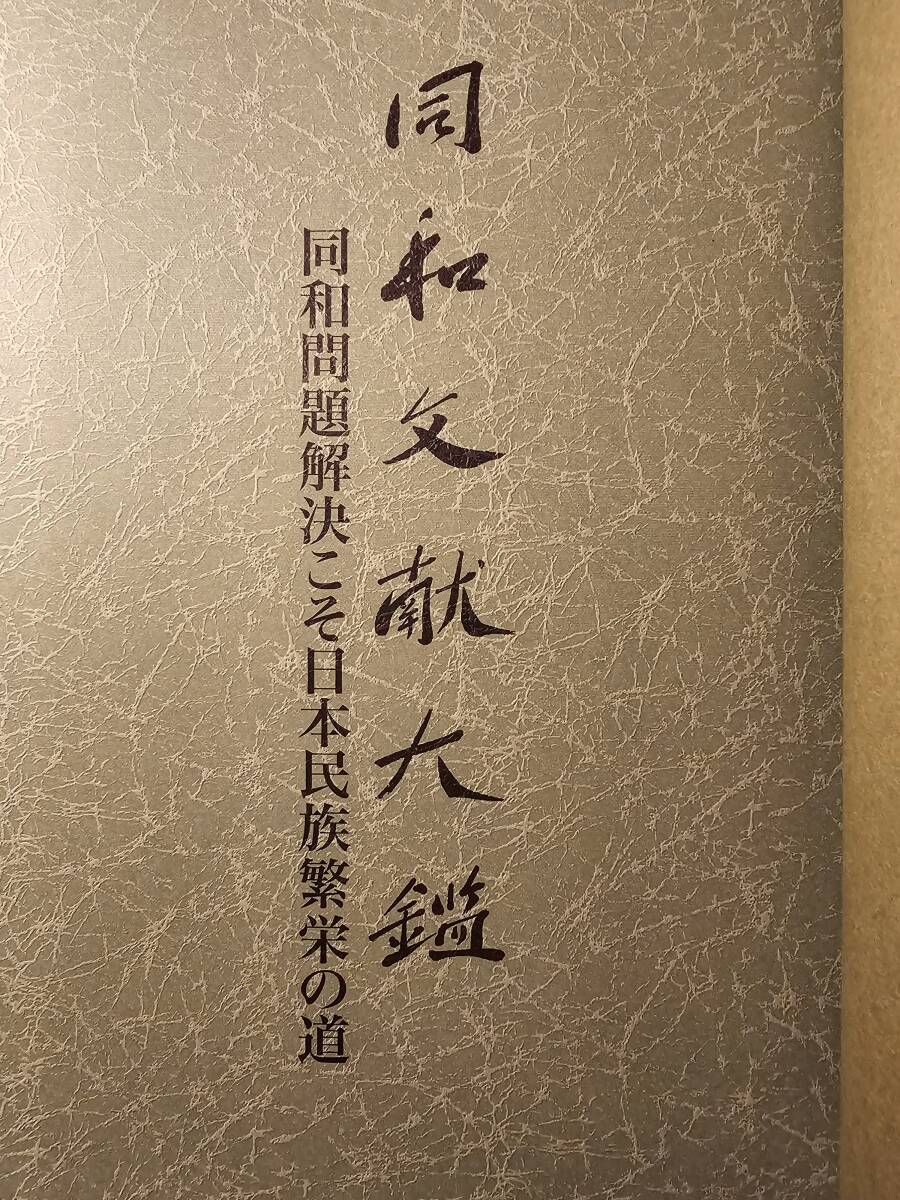 同和文献大鑑
同和問題解決こそ日本民族繁栄の道